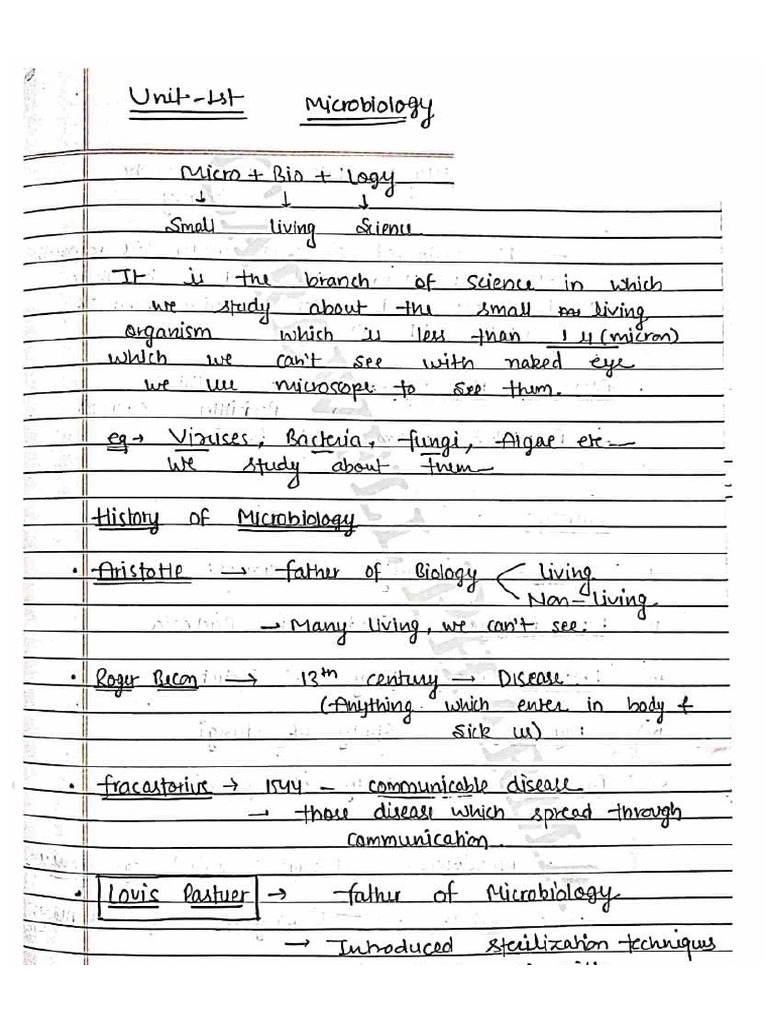 Unit-1st Microbiology
Micro + Bio + logy
↓ ↓ ↓
Small living Science
It is the branch of science in which
we study about the small living
organism which is less than 1 μ (micron)
which we can't see with naked eye
we use microscope to see them.
eg → Viruses, Bacteria, fungi, Algae etc
we study about them
History of Microbiology
• Aristotle → father of Biology < living
Non-living
→ Many living, we can't see.
• Roger Becon → 13th century → Disease
(Anything which enter in body &
sick us)
• fracastorius → 1544 - communicable disease
→ those disease which spread through
communication.
• Lovis Pastuer → father of Microbiology
→ Introduced sterilization techniques